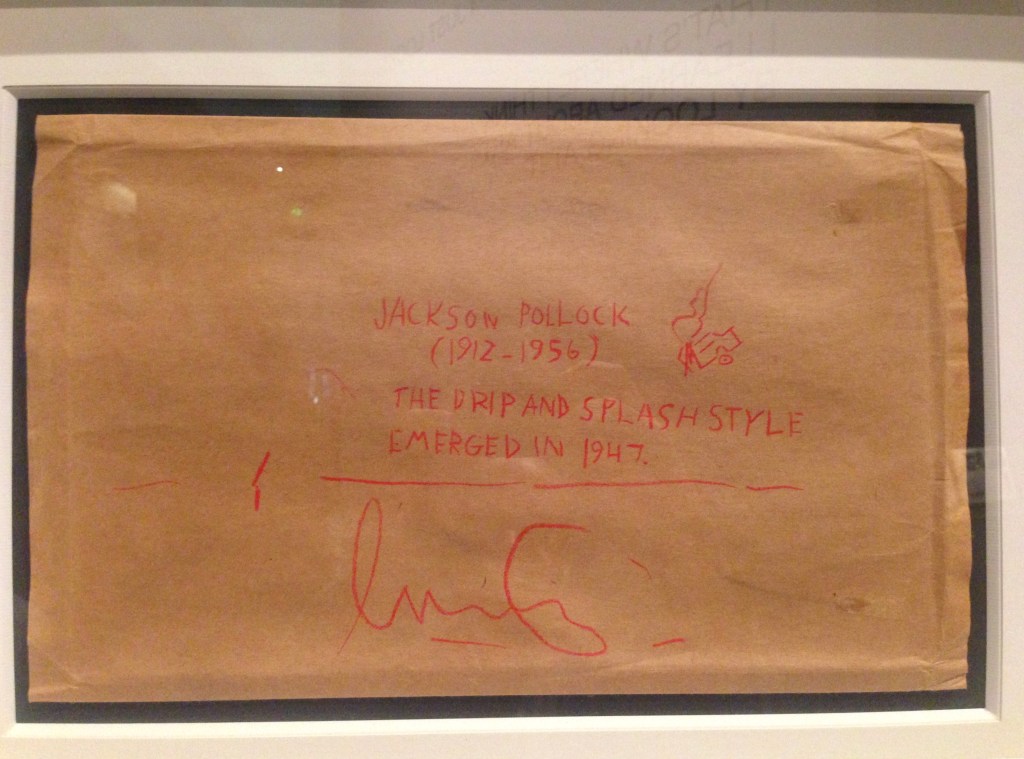 JACKSON POLLOCK
(1912-1956)
THE DRIP AND SPLASH STYLE
EMERGED IN 1947.